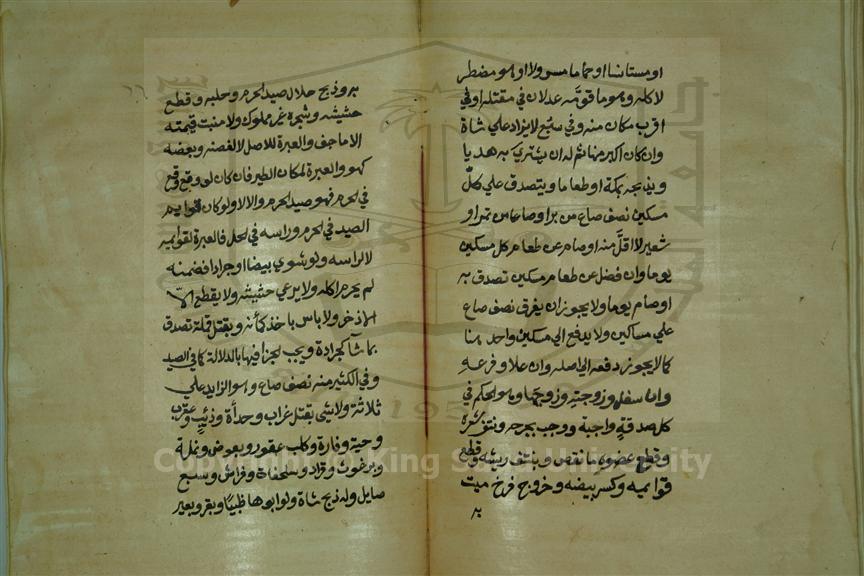 او مستانسا او حماما مسرولا او هو مضطر
لاكله وهو ما قومه عدلان في مقتله او في
اقرب مكان منه وفي سبع لا يزاد علي شاة
وان كان اكبر منها ثم له ان يشتري به هديا
ويذبحه بمكة او طعاما ويتصدق علي كلّ
مسكين نصف صاع من بر او صاعا من تمر او
شعير لا اقلّ منه او صام عن طعام كل مسكين
يوما وان فضل عن طعام مسكين تصدق به
او صام يوما ولا يجوز ان يفرق نصف صاع
علي مساكين ولا يدفع الي مسكين واحد هنا
كما لا يجوز دفعه الي اصله وان علا وفرعه
وان سفل وزوجته وزوجها وهو الحكم في
كل صدقةٍ واجبة ووجب بجرحه ونتف شعره
وقطع عضوه ما نقص وبنتف ريشه وقطع
قوايمه وكسر بيضه وخروج فرخ ميت
به
به وذبح حلال صيد الحرم وحلبه وقطع
حشيشه وشجره غير مملوك ولا منبت قيمته
الا ما جف والعبرة للاصل لا لغصنه وبعضه
كهو والعبرة لمكان الطير فان كان لو وقع وقع
في الحرم فهو صيد الحرم والا لا ولو كان قوايم
الصيد في الحرم وراسه في الحل فالعبرة لقوايمه
لا لراسه ولو شوي بيضا او جرادا فضمنه
لم يحرم اكله ولا يرعي حشيشه ولا يقطع الاّ
الاذخر ولا باس باخذ كمأته وبقتل قملة تصدق
بما شآ كجرادة ويجب الجزا فيها بالدلالة كما في الصيد
وفي الكثير منه نصف صاع وهو الزايد علي
ثلاثة ولا شئ بقتل غراب وحدأة وذئب وعقرب
وحية وفارة وكلب عقور وبعوض ونملة
وبرغوث وقراد وسلحفاة وفراش وسبع
صايل وله ذبح شاة ولو ابوها ظبيًا وبقر وبعير
Copyright © King Saud University